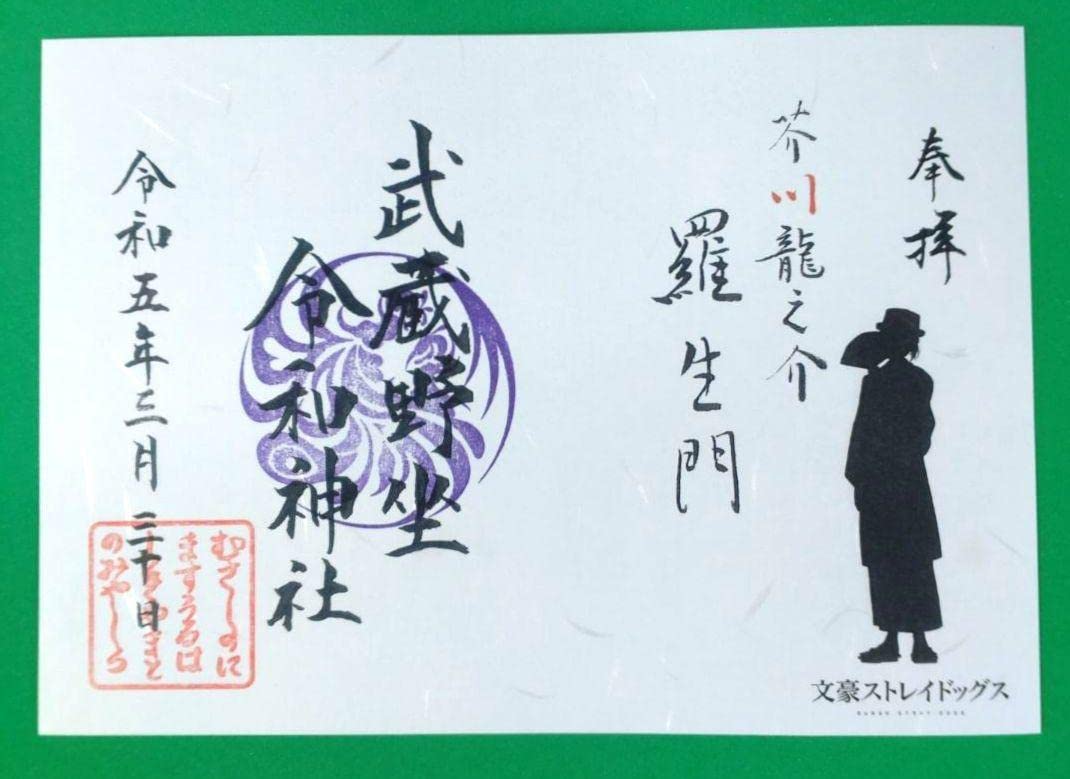 奉拝
芥川龍之介
羅生門
武蔵野坐
令和神社
令和五年三月二十日
むさしのに
ますうるは
しきやまと
のみやしろ
文豪ストレイドッグス
BUNGO STRAY DOGS